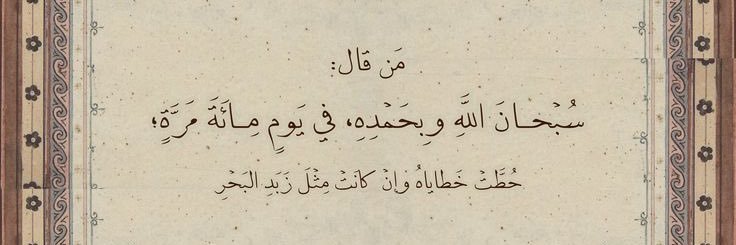 مَن قال:
سُبْحـانَ اللَّهِ وبِحَمْدِهِ، في يَومٍ مِـائَةَ مَرَّةٍ؛
حُطَّتْ خَطاياهُ وإنْ كانَتْ مِثْلَ زَبَدِ البَحْرِ